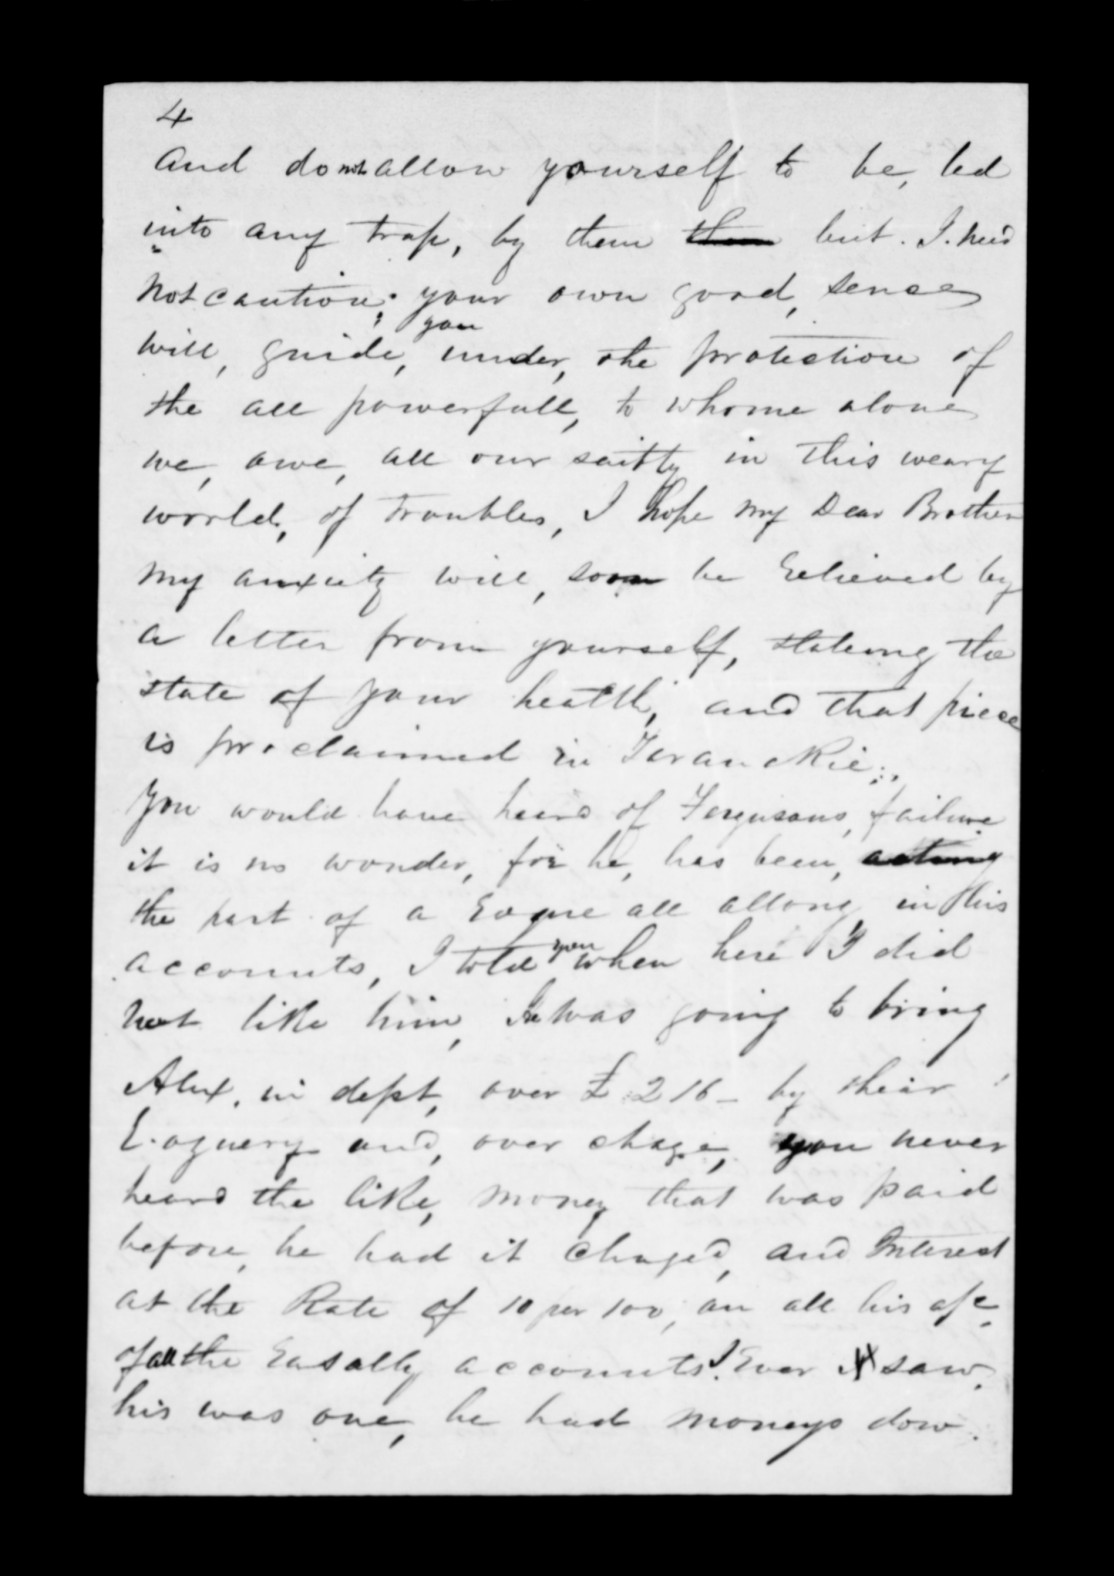 4
and do not allow yourself to be, led
into any trap, by them them but. I. need
not caution; your own good, sense
will, guide, you under, the protection of
the all powerfull, to whome alone
we, owe, all our saifty in this weary
world, of troubles, I hope my Dear Brother
my anxiety will, soon be Relieved by
a letter from yourself, stateing the
state of your health, and that piece
is proclaimed in Taranckie;.
You would have heard of Fergusons, failure
it is no wonder, for he, has been, acting
the part of a Rogue all allong in his
accounts, I told you when here I did
not like him, he was going to bring
Alex, in dept, over £216 - by their
Roguery and, over chage, you never
heard the like, money that was paid
before, he had it chaged, and Interest
at the Rate of 10 per 100, on all his a/c,
of all the Rasally accounts. I Ever saw,
his was one, he had moneys dow.